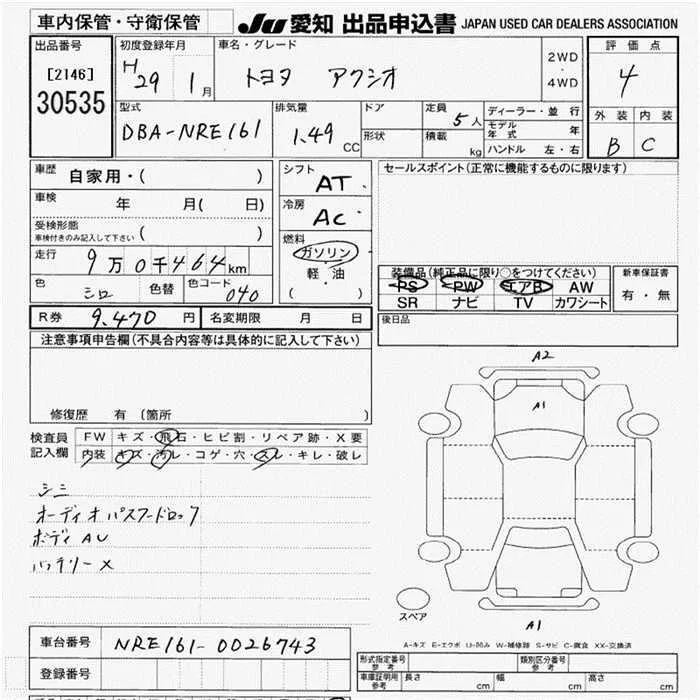 車内保管・守衛保管
JU 愛知 出品申込書 JAPAN USED CAR DEALERS ASSOCIATION
出品番号 初度登録年月 車名・グレード 評価点
[2146] H 29 1月 トヨタ アクシオ 2WD・4WD 4
30535
型式 排気量 ドア 定員 ディーラー・並行 外装 内装
DBA-NRE161 1.49 CC 5人 モデル年式 年 B C
形状 積載 kg ハンドル 左・右
車歴 自家用・( ) シフト AT セールスポイント(正常に機能するものに限ります)
車検 年 月( 日) 冷房 AC
受検形態 ( )
車検付きのみ記入して下さい
燃料 ガソリン
軽・油
( )
走行 9万0千464km
装備品(純正品に限り○をつけてください) 新車保証書
PS PW エアB AW 有・無
SR ナビ TV カワシート
色 シロ 色替 色コード 040
後日品
R券 9,470円 名変期限 月 日
注意事項申告欄(不具合内容等は具体的に記入して下さい)
修復歴 有 (箇所 )
A2
A1
検査員記入欄 FW キズ・飛石・ヒビ割・リペア跡・X要
内装 キズ・汚レ・コゲ・穴・スレ・キレ・破レ
オーディオパスワードロック
バッテリー×
スペア
A1
A-キズ E-エクボ U-凹み W-補修跡 S-サビ C-腐食 XX-交換済
車台番号 NRE161-0026743
登録番号
形式指定番号 参考 類別区分番号 参考
車庫証明用 参考 長さ cm 幅 cm 高さ cm